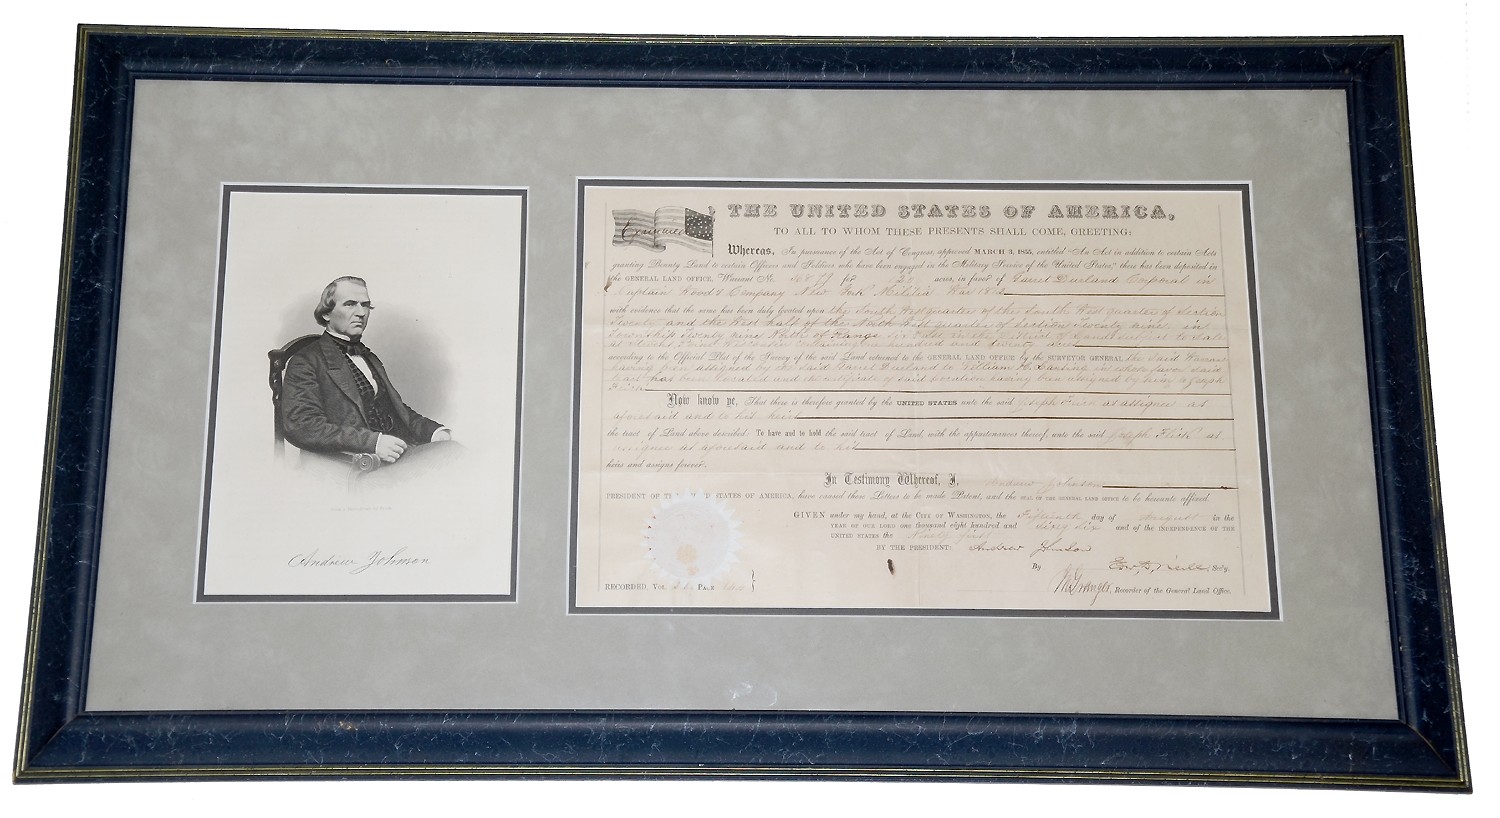 Andrew Johnson
THE UNITED STATES OF AMERICA,
TO ALL TO WHOM THESE PRESENTS SHALL COME, GREETING:
Whereas, In pursuance of the Act of Congress, approved MARCH 3, 1855, entitled "An Act in addition to certain Acts
granting Bounty Land to certain Officers and Soldiers who have been engaged in the Military Service of the United States," there has been deposited in
the GENERAL LAND OFFICE, Warrant No. for 120 acres, in favor of Durland Corporal in
Captain Wood's Company New York Militia War 1812
with evidence that the same has been duly located upon the South West quarter of the South West quarter of Section
Twenty and the West half of the North West quarter of Section Twenty nine in
Township Twenty nine North of Range six West in the District of Lands subject to sale
at containing one hundred and twenty acres
according to the Official Plat of the Survey of the said Land returned to the GENERAL LAND OFFICE by the SURVEYOR GENERAL the said Warrant
having been assigned by the said Durland to William H. in whose favor said
tract has been located and the certificate of said location having been assigned by him to Joseph
Flick
Now know ye, That there is therefore granted by the UNITED STATES unto the said Joseph Flick as assignee as
aforesaid and to his heirs
the tract of Land above described: To have and to hold the said tract of Land, with the appurtenances thereof, unto the said Joseph Flick as
assignee as aforesaid and to his
heirs and assigns forever.
In Testimony Whereof, I, Andrew Johnson
PRESIDENT OF THE UNITED STATES OF AMERICA, have caused these Letters to be made Patent, and the SEAL OF THE GENERAL LAND OFFICE to be hereunto affixed.
GIVEN under my hand, at the CITY OF WASHINGTON, the Fifteenth day of August in the
YEAR OF OUR LORD one thousand eight hundred and Sixty Six and of the INDEPENDENCE OF THE
UNITED STATES the Ninety first
BY THE PRESIDENT: Andrew Johnson
By Edw. D. Neill, Sec'y.
Granger, Recorder of the General Land Office.
RECORDED, VOL. PAGE